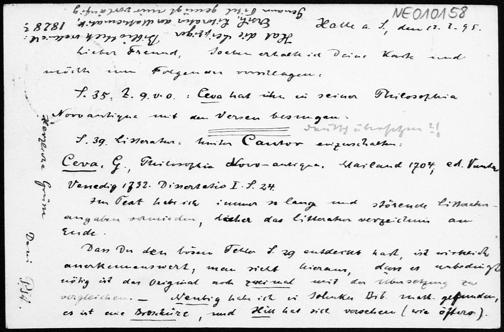 NE010158
Halle a S, den 12. 2. 95.
Lieber Freund, Soeben erhalte ich Deine Karte und
möchte um Folgendes vorschlagen:
S. 35. Z. 9. v. o.: Ceva hat ihn in seiner Philosophia
Novo-antiqua mit den Versen besungen.
S. 39. Litteratur. hinter Cantor einzuschalten:
Ceva, G., Philosophia Novo-antiqua. Mailand 1704, ed.
Venedig 1732. Dissertatio I. S. 24.
Im Text habe ich immer so lang und störende Litteratur-
angaben vermieden, lieber das Litteraturverzeichnis am
Ende.
Dass Du den bösen Fehler S. 29 entdeckt hast, ist wirklich
anerkennenswert, man sieht hieraus, dass es unbedingt
nötig ist das Original noch zweimal mit der Umsetzung zu
vergleichen. — habe ich in Bib. math. gefunden,
es ist eine Broschüre, und hat sich versehen (wie öfters).
Herzliche Grüsse Dein
Hat die Leipziger Bibliothek vielleicht:
1828?